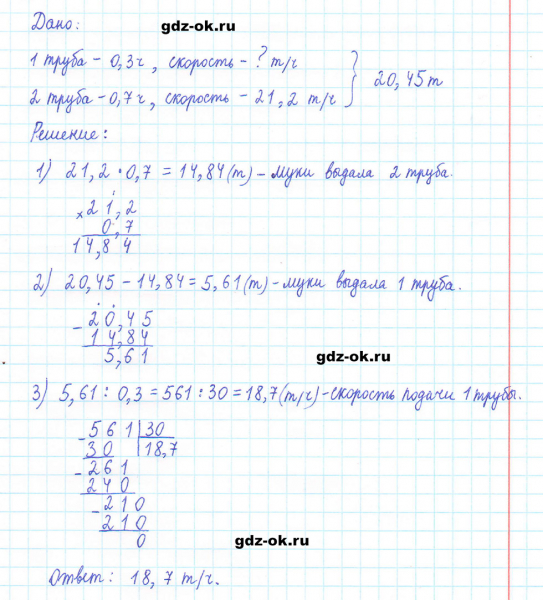 Дано:
gdz-ok.ru
1 труба - 0,3ч, скорость - ? т/ч
2 труба - 0,7ч, скорость - 21,2 т/ч } 20,45т
Решение:
1) 21,2 · 0,7 = 14,84(т) - муки выдала 2 труба.
× 21,2
0,7
14,84
2) 20,45 - 14,84 = 5,61(т) - муки выдала 1 труба.
- 20,45
14,84
5,61
gdz-ok.ru
3) 5,61 : 0,3 = 561 : 30 = 18,7(т/ч) - скорость подачи 1 трубы.
- 561 | 30
30 | 18,7
- 261
240
- 210
210
0
gdz-ok.ru
Ответ: 18,7 т/ч.